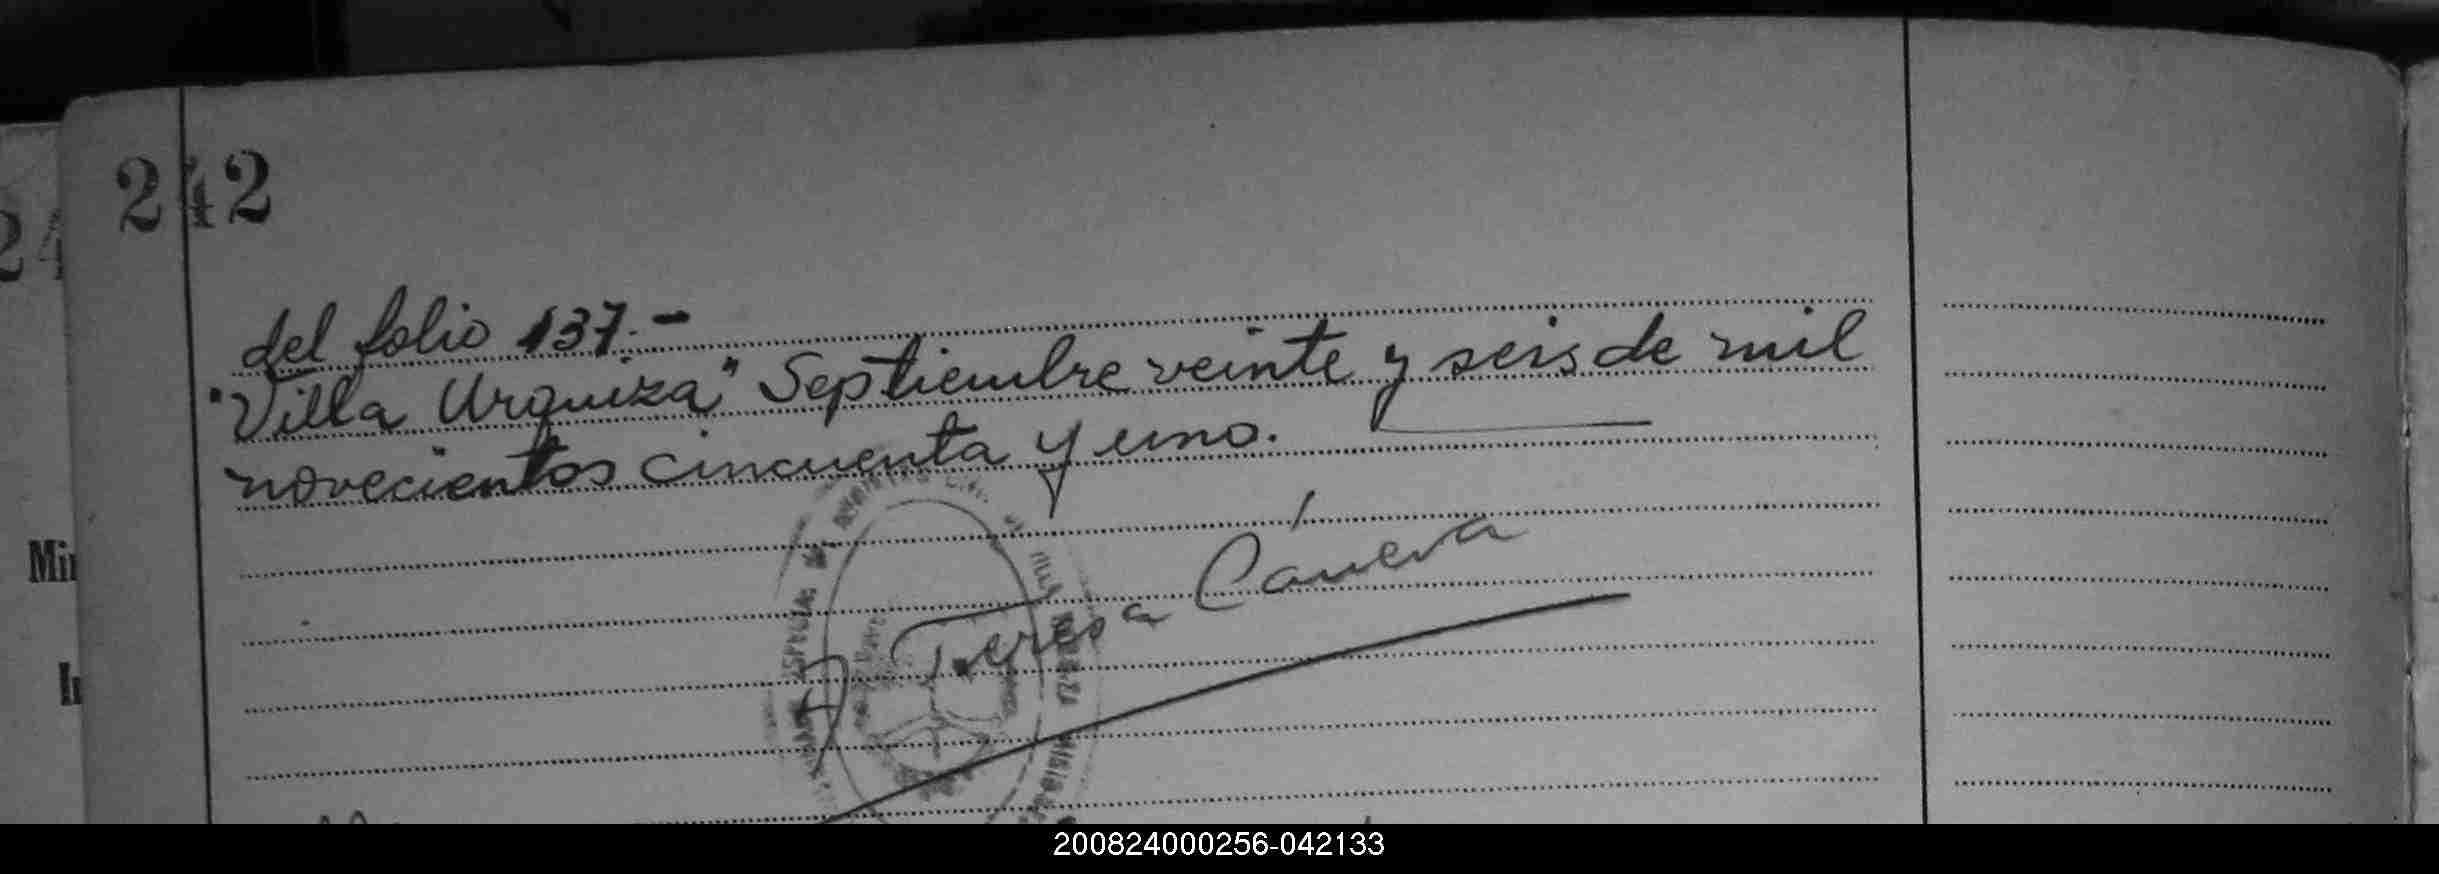 242
del folio 137.-
"Villa Urquiza" Septiembre veinte y seis de mil
novecientos cincuenta y uno.
Teresa
Min
200824000256-042133